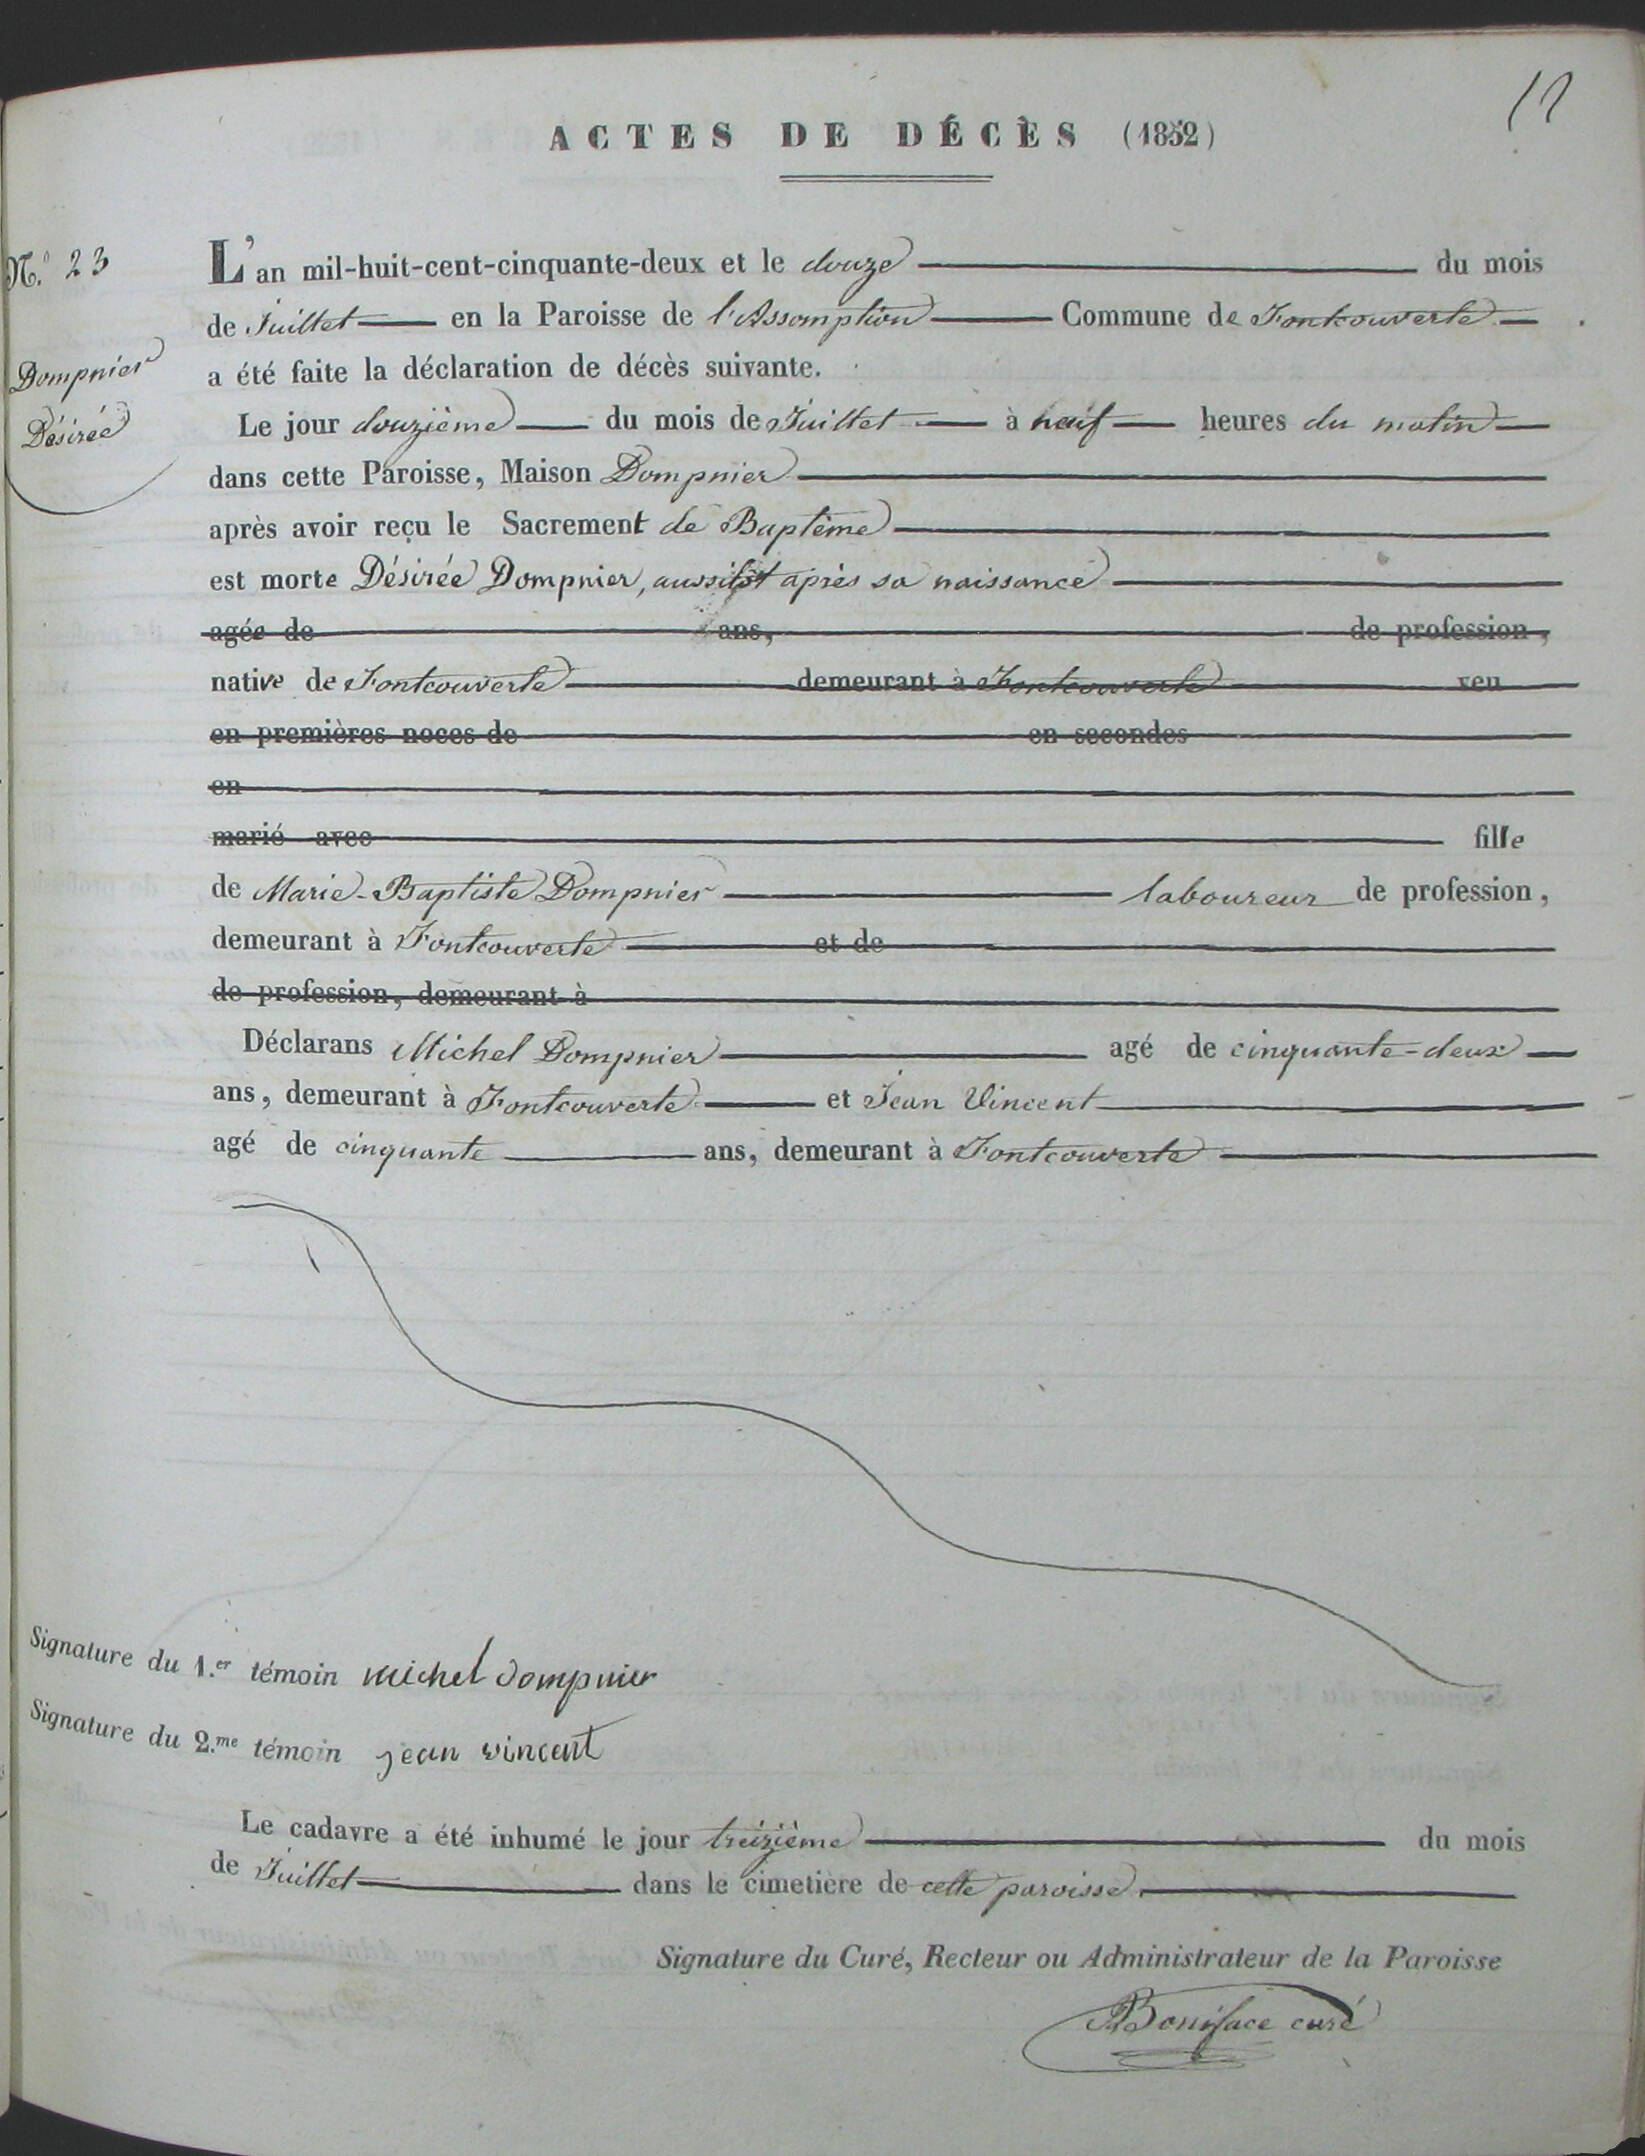 12
ACTES DE DÉCÈS (1852)
N.º 23
Dompnier
Désirée
L'an mil-huit-cent-cinquante-deux et le douze du mois
de Juillet en la Paroisse de l'Assomption Commune de Fontcouverte
a été faite la déclaration de décès suivante.
Le jour douzième du mois de Juillet à neuf heures du matin
dans cette Paroisse, Maison Dompnier
après avoir reçu le Sacrement de Baptême
est morte Désirée Dompnier, aussitôt après sa naissance
agée de ans, de profession,
native de Fontcouverte demeurant à Fontcouverte veu
en premières noces de en secondes
en
marié avec fille
de Marie-Baptiste Dompnier laboureur de profession,
demeurant à Fontcouverte et de
de profession, demeurant à
Déclarans Michel Dompnier agé de cinquante-deux
ans, demeurant à Fontcouverte et Jean Vincent
agé de cinquante ans, demeurant à Fontcouverte
Signature du 1.er témoin michel dompnier
Signature du 2.me témoin jean vincent
Le cadavre a été inhumé le jour treizième du mois
de Juillet dans le cimetière de cette paroisse.
Signature du Curé, Recteur ou Administrateur de la Paroisse
Boniface curé